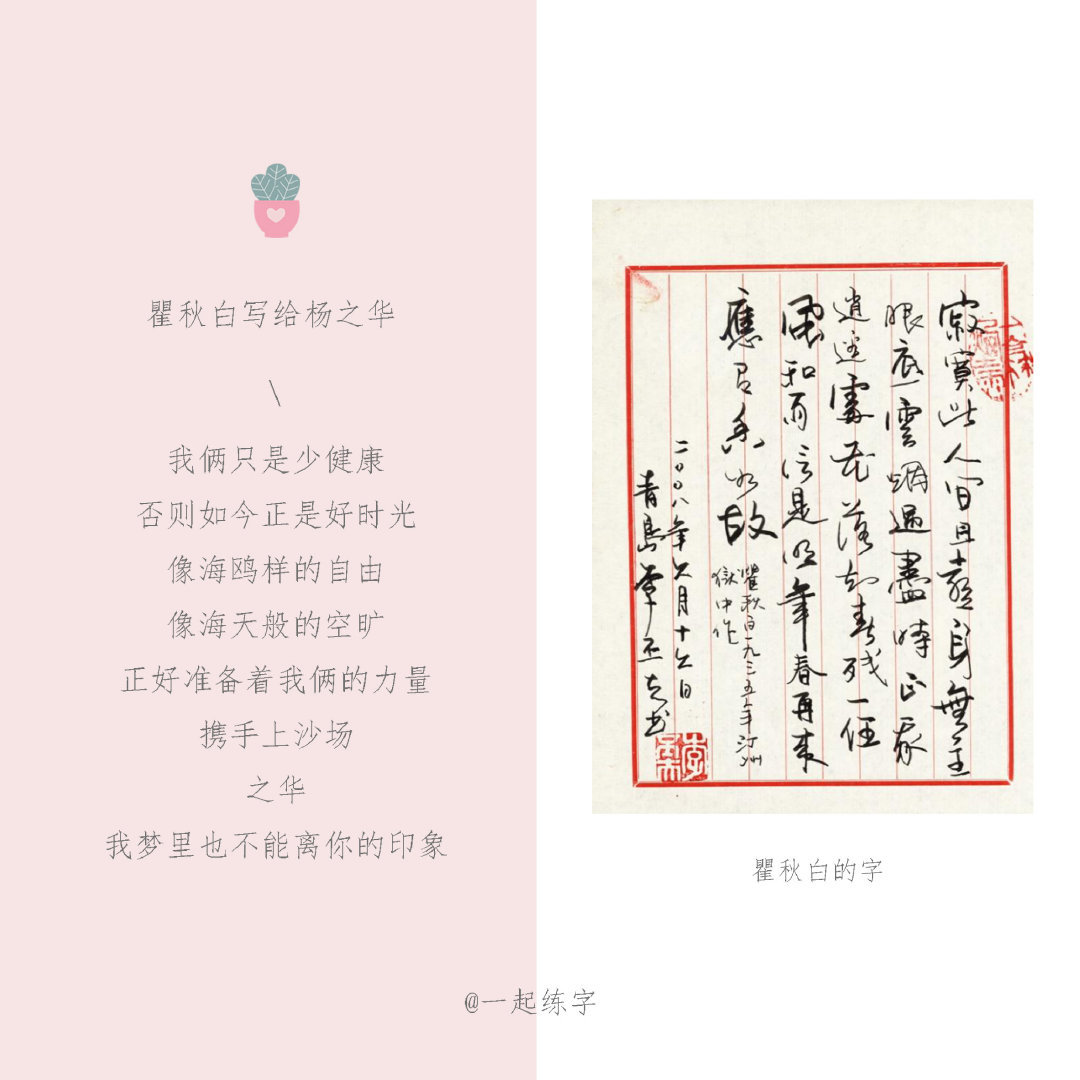 瞿秋白写给杨之华
\
我俩只是少健康
否则如今正是好时光
像海鸥样的自由
像海天般的空旷
正好准备着我俩的力量
携手上沙场
之华
我梦里也不能离你的印象
寂寞此人间且喜身無主
眼底雲煙過盡時正我
逍遥處花落知春残一任
風和雨信是明年春再来
應有香如故
瞿秋白一九三五年汀州
獄中作
二〇〇八年六月十六日
青島
瞿秋白的字
@一起练字